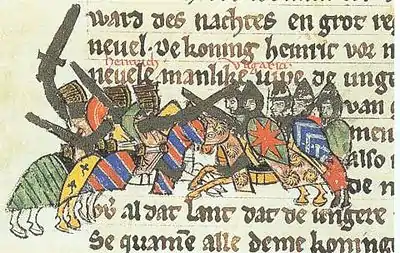 ward des nachtes en grot re
neuel. De koning heinric vor n
heinrich
vngarie
neuele manlike
de unge
van
men
also
de n
al dat lant dat de ungere
Se quamē alle deme koning